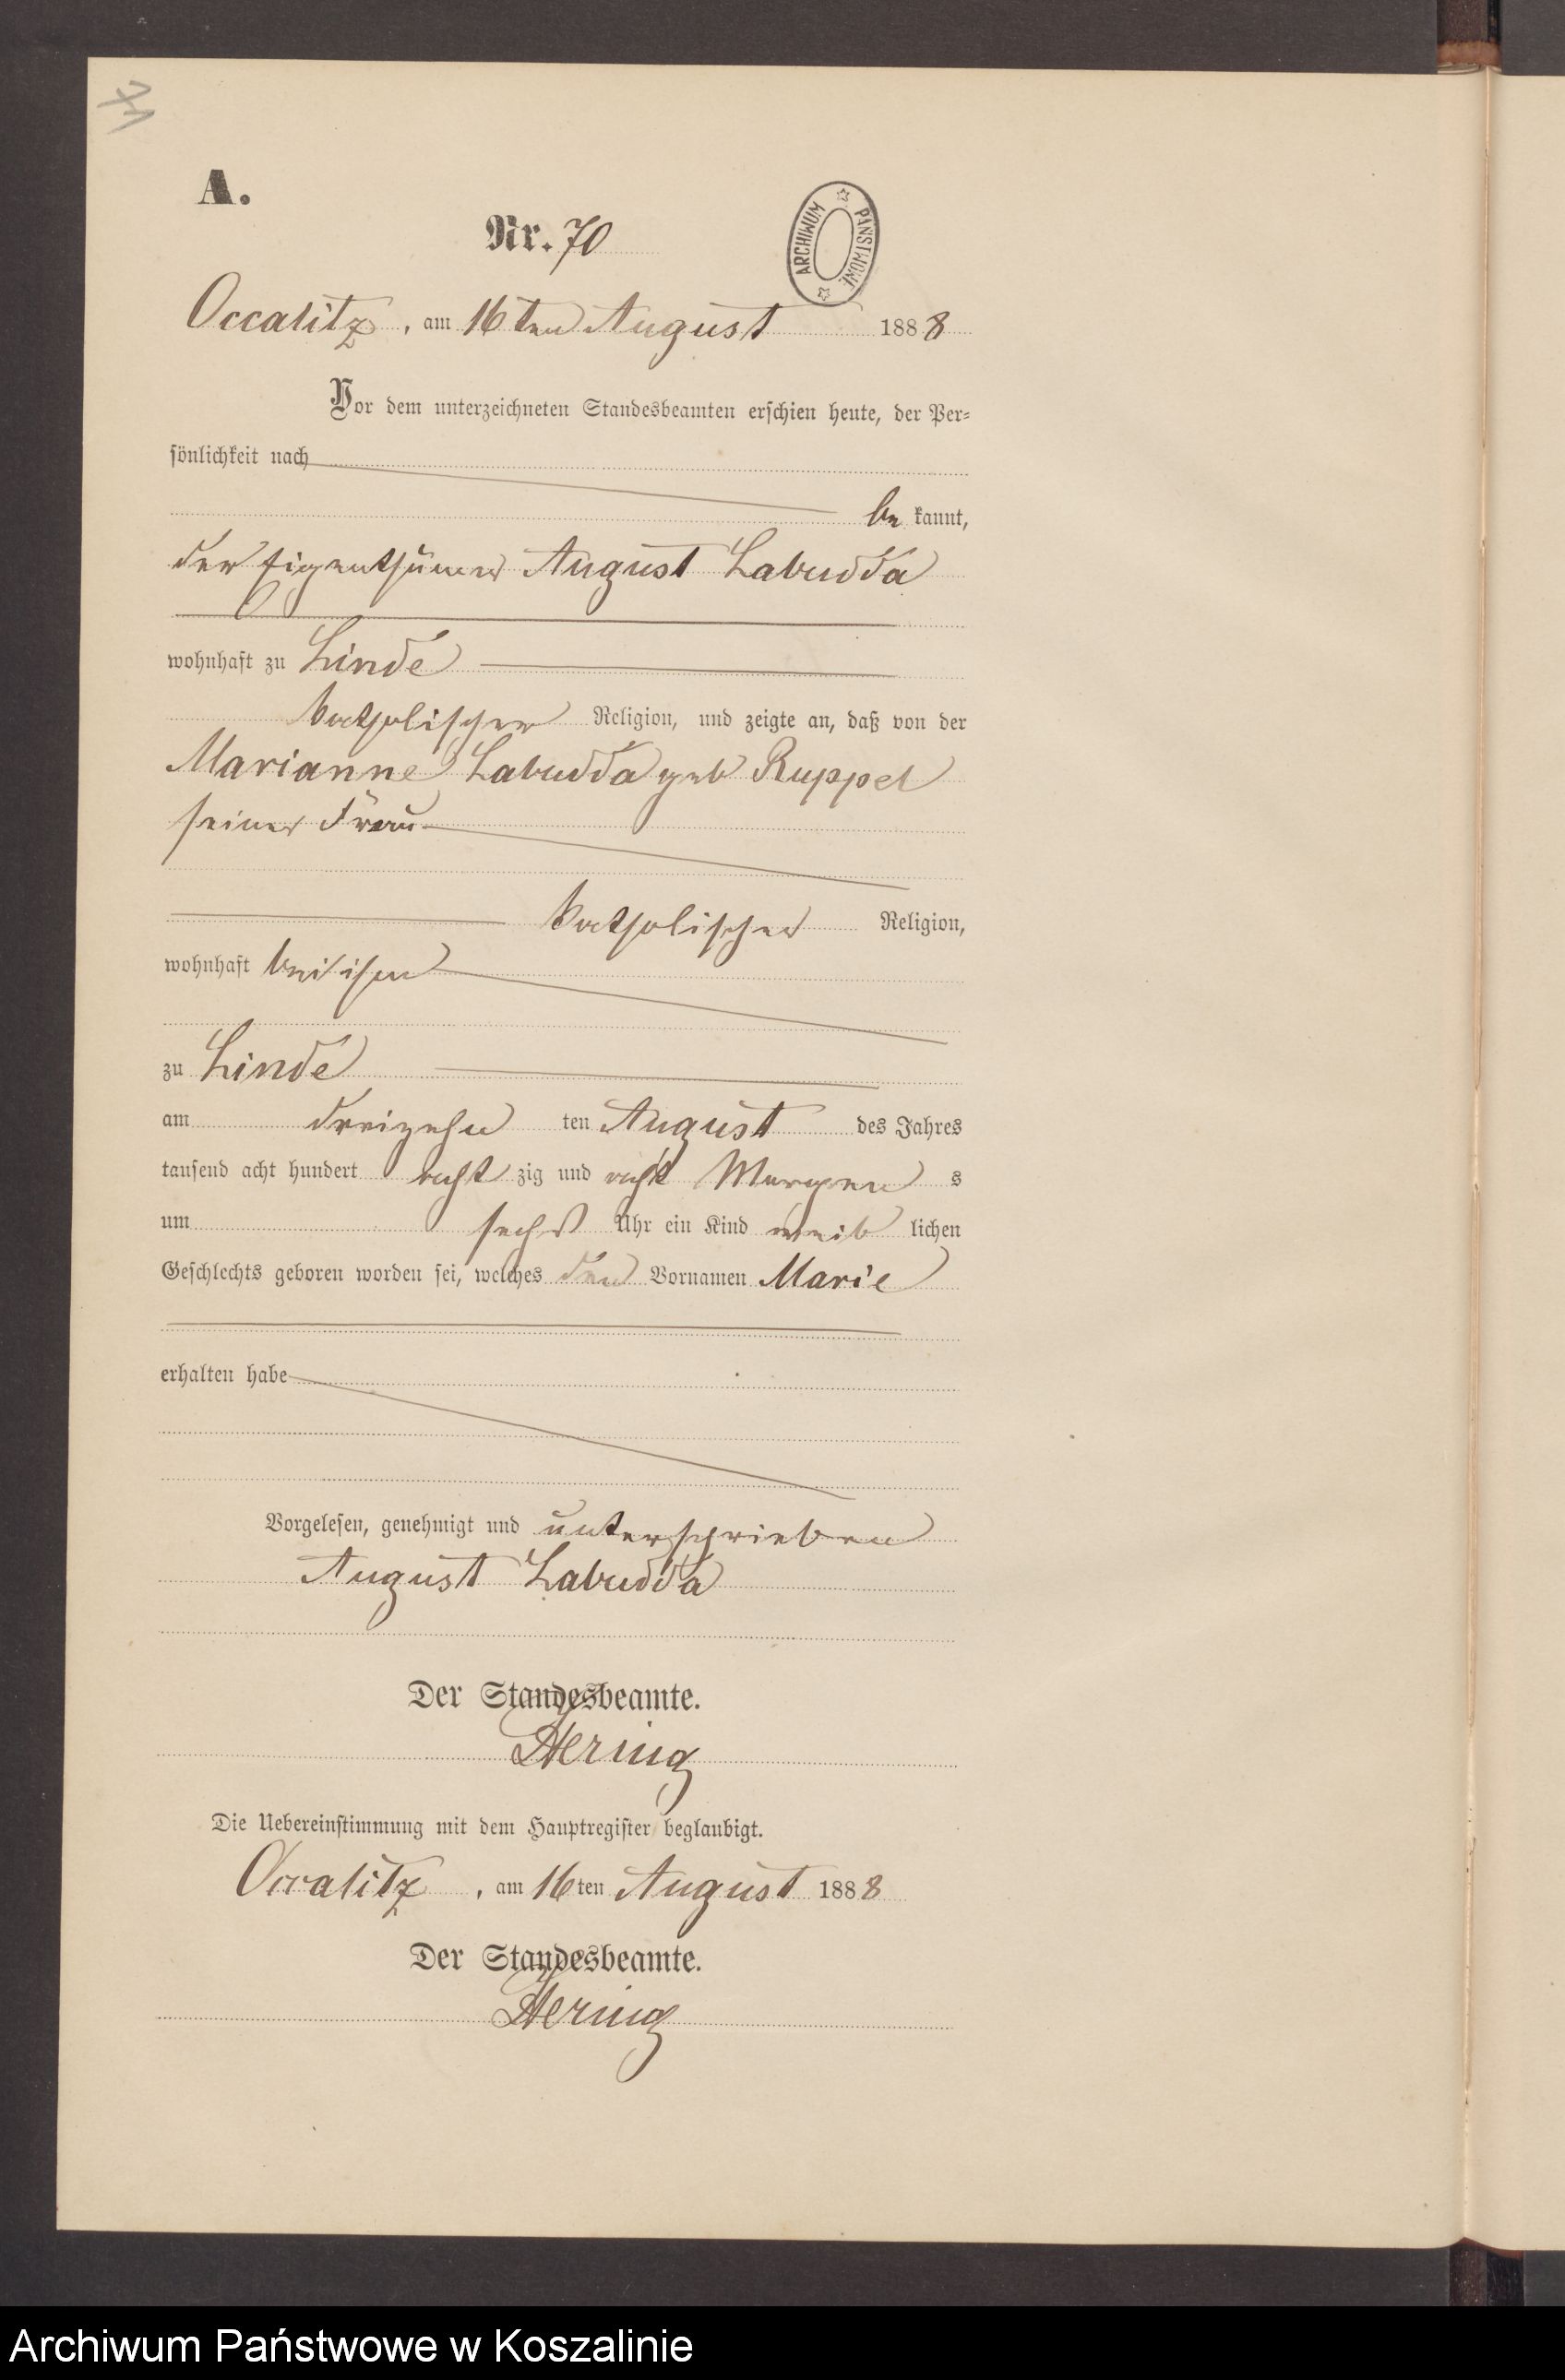 A.
Nr. 70
ARCHIWUM PAŃSTWOWE
Occalitz, am 16ten August 1888
Vor dem unterzeichneten Standesbeamten erschien heute, der Per-
sönlichkeit nach
be kannt,
der Eigenthümer August Labudda
wohnhaft zu Linde
katholischer Religion, und zeigte an, daß von der
Marianne Labudda geb Ruppel
seiner Frau
katholischer Religion,
wohnhaft bei ihm
zu Linde
am dreizehn ten August des Jahres
tausend acht hundert acht zig und acht Morgen s
um sechs Uhr ein Kind weib lichen
Geschlechts geboren worden sei, welches den Vornamen Marie
erhalten habe
Vorgelesen, genehmigt und unterschrieben
August Labudda
Der Standesbeamte.
Hering
Die Uebereinstimmung mit dem Hauptregister beglaubigt.
Occalitz, am 16ten August 1888
Der Standesbeamte.
Hering
Archiwum Państwowe w Koszalinie